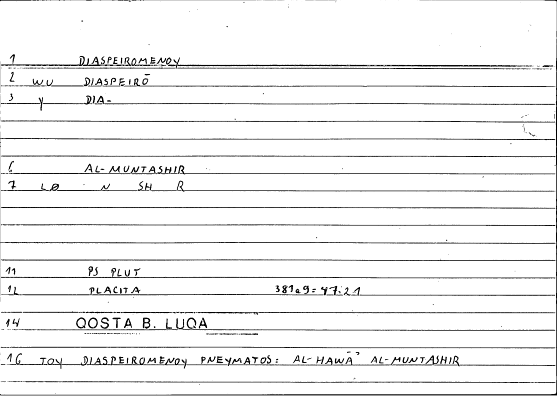 1 DIASPEIROMENOY
2 WU DIASPEIRŌ
3 Y DIA-
6 AL-MUNTASHIR
7 LØ N SH R
11 PS PLUT
12 PLACITA 381a9=47.21
14 QOSTA B. LUQA
16 TOY DIASPEIROMENOY PNEYMATOS: AL-HAWĀ' AL-MUNTASHIR